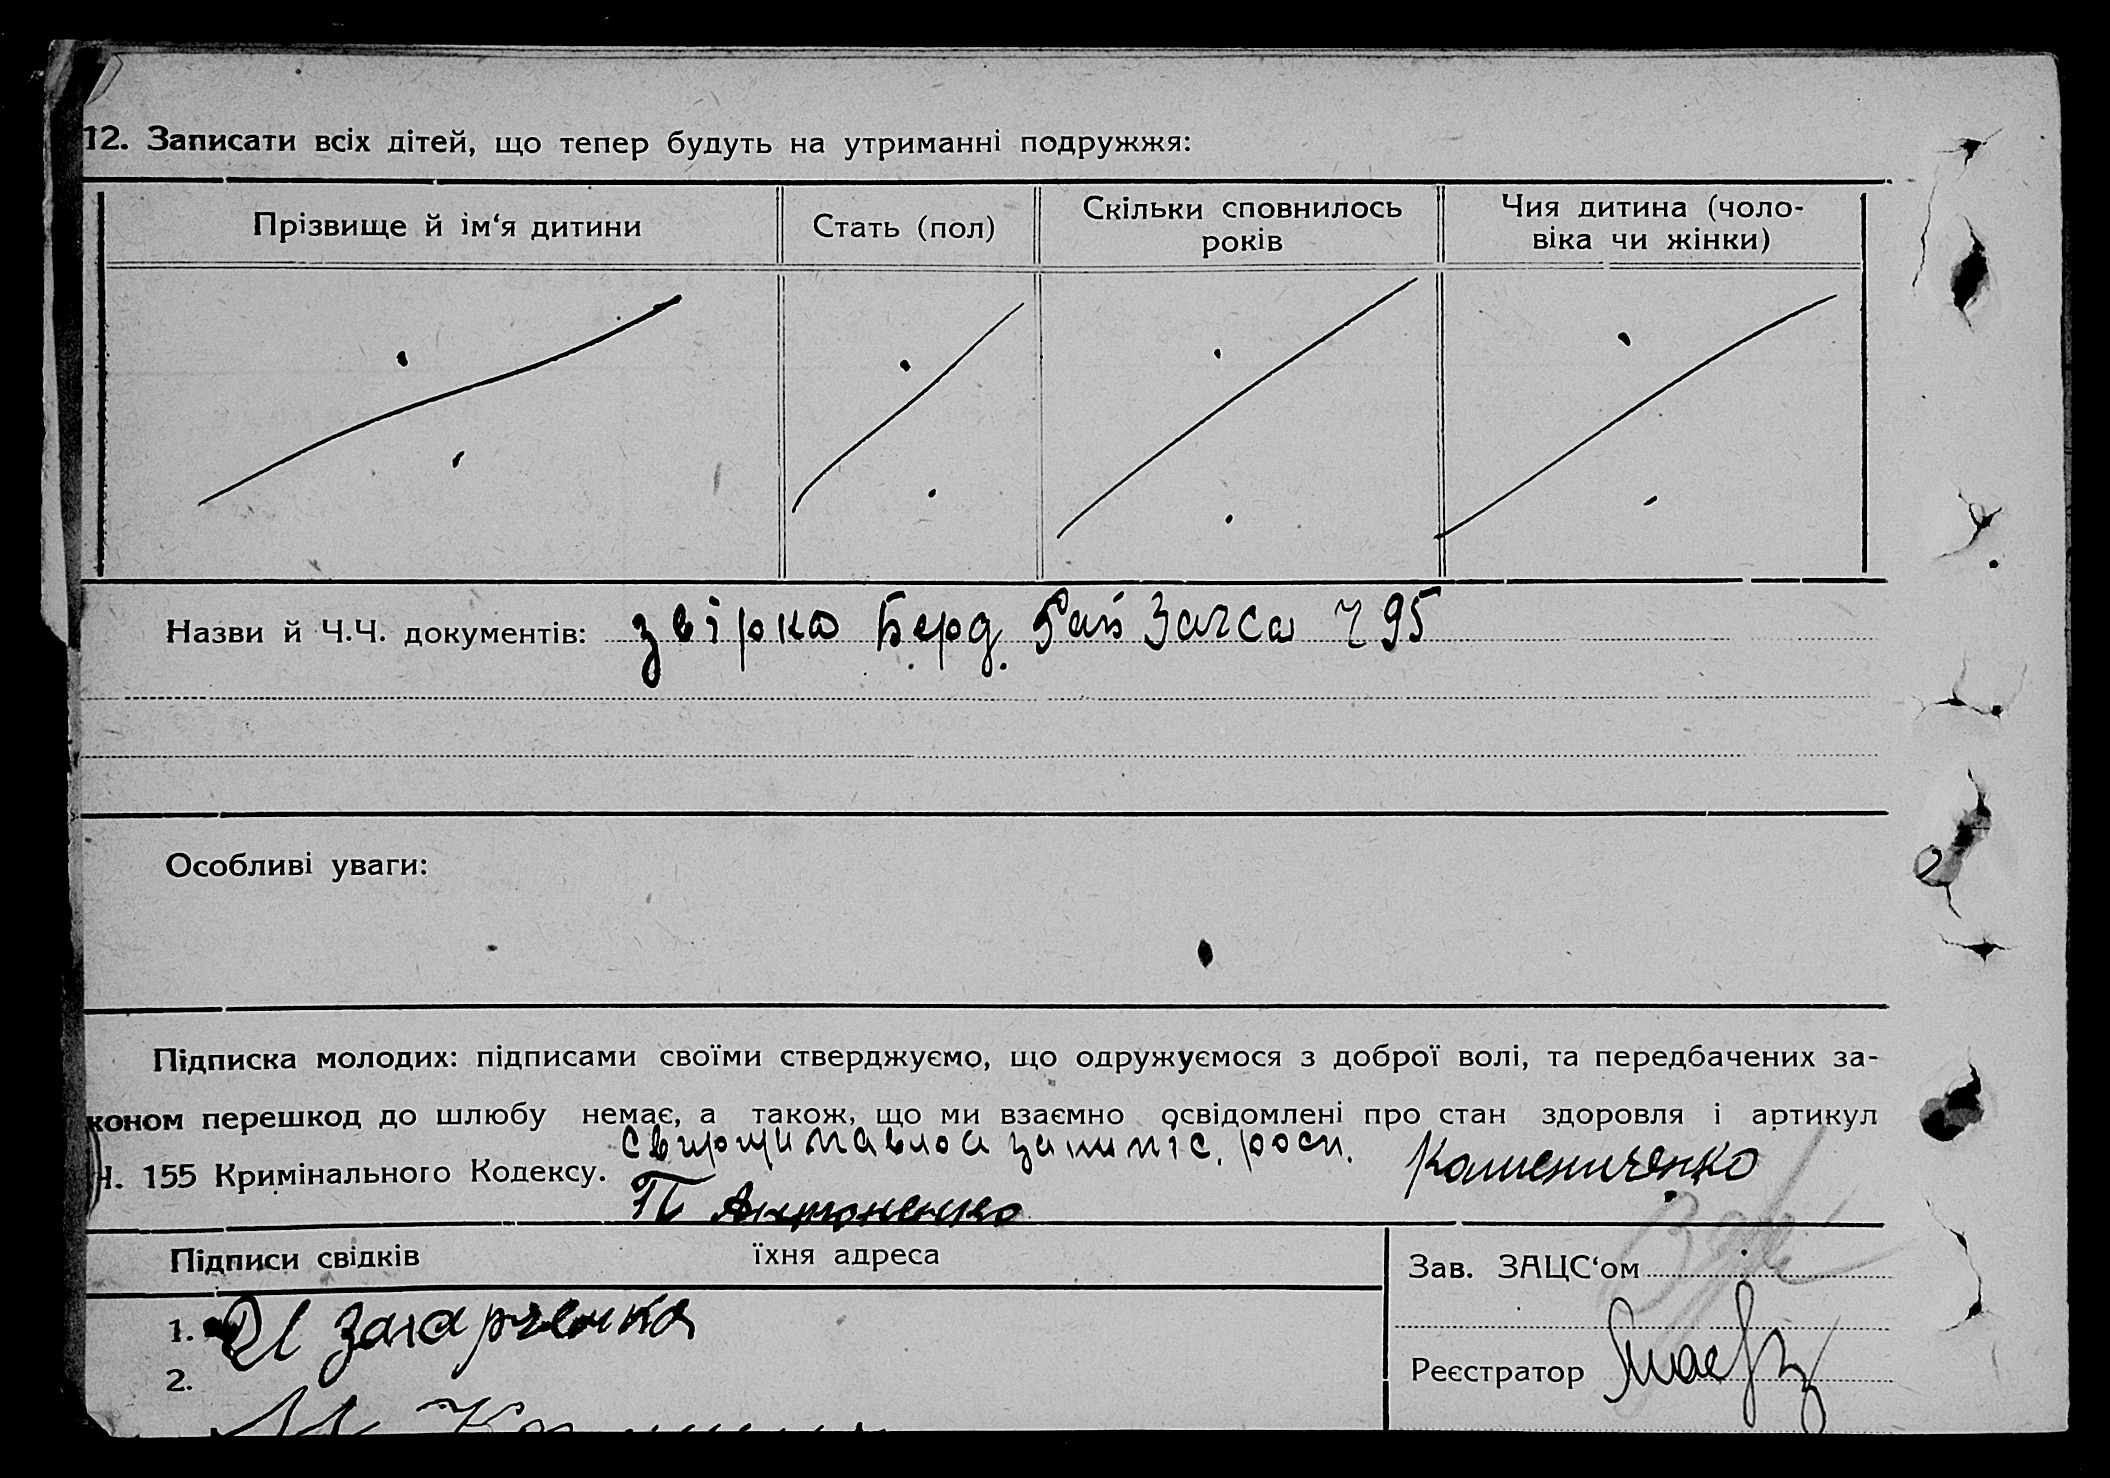 12. Записати всіх дітей, що тепер будуть на утриманні подружжя:
Прізвище й ім‘я дитини
Стать (пол)
Скільки сповнилось
років
Чия дитина (чоло-
віка чи жінки)
Назви й Ч.Ч. документів: звірка Берд. Рай Загса Ч 95
Особливі уваги:
Підписка молодих: підписами своїми стверджуємо, що одружуємося з доброї волі, та передбачених за-
коном перешкод до шлюбу немає, а також, що ми взаємно освідомлені про стан здоровля і артикул
Ч. 155 Кримінального Кодексу.
П Антоненко
Підписи свідків їхня адреса
Зав. ЗАЦС‘ом
1. Захарченко
Реєстратор
2.